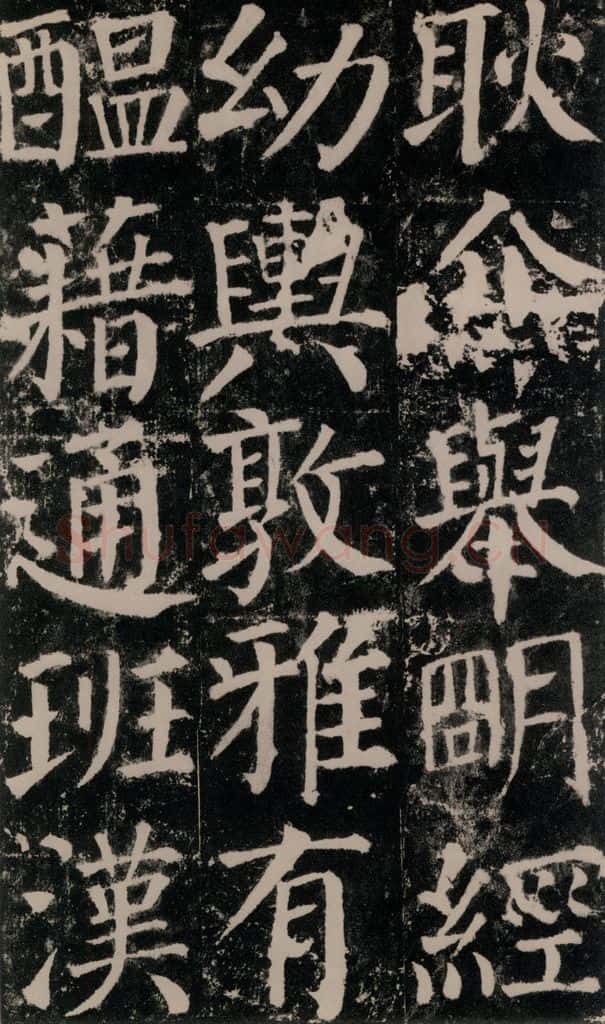 耿介舉朙經
幼輿敦雅有
醖藉通班漢
Shufawang.cn